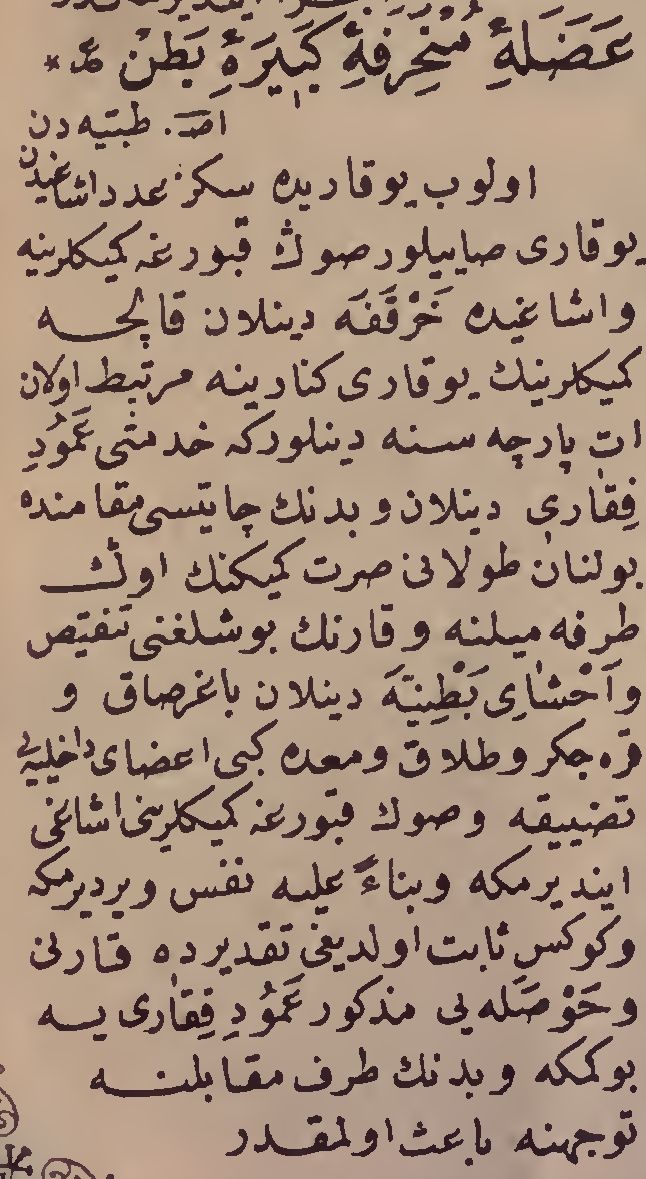 عَضَلَهٔ مُنْحَرِفَهٔ كَبِيرَهٔ بَطْن
اصـ. طبيه دن
اولوب يوقاريده سكز عدد اشاغيدن
يوقارى صاييلور صوڭ قبورغه كميكلرينه
واشاغيده خَرْقَفَه دينلان قالجه
كميكلرينك يوقارى كنارينه مرتبط اولان
ات پارچه سنه دينلوركه خدمتى عَمُودِ
فِقَارى دينلان و بدنك چاتيسى مقامنده
بولنان طولانى صرت كميكنك اوڭ
طرفه ميلنه و قارنك بوشلغنى تنقيص
واَحْشاىِ بَطْنِيَّهَ دينلان باغرصاق و
قره جكر و طلاق و معده كبى اعضاى داخليه يى
تضييقه وصوك قبورغه كميكلرينى اشاغى
اينديرمكه و بناءً عليه نفس ويرديرمكه
وكوكس ثابت اولديغى تقديرده قارنى
وحَوْصَلَه يى مذكور عَمُودِ فِقَارى يه
بوكمكه و بدنك طرف مقابلنه
توجهنه باعث اولمقدر